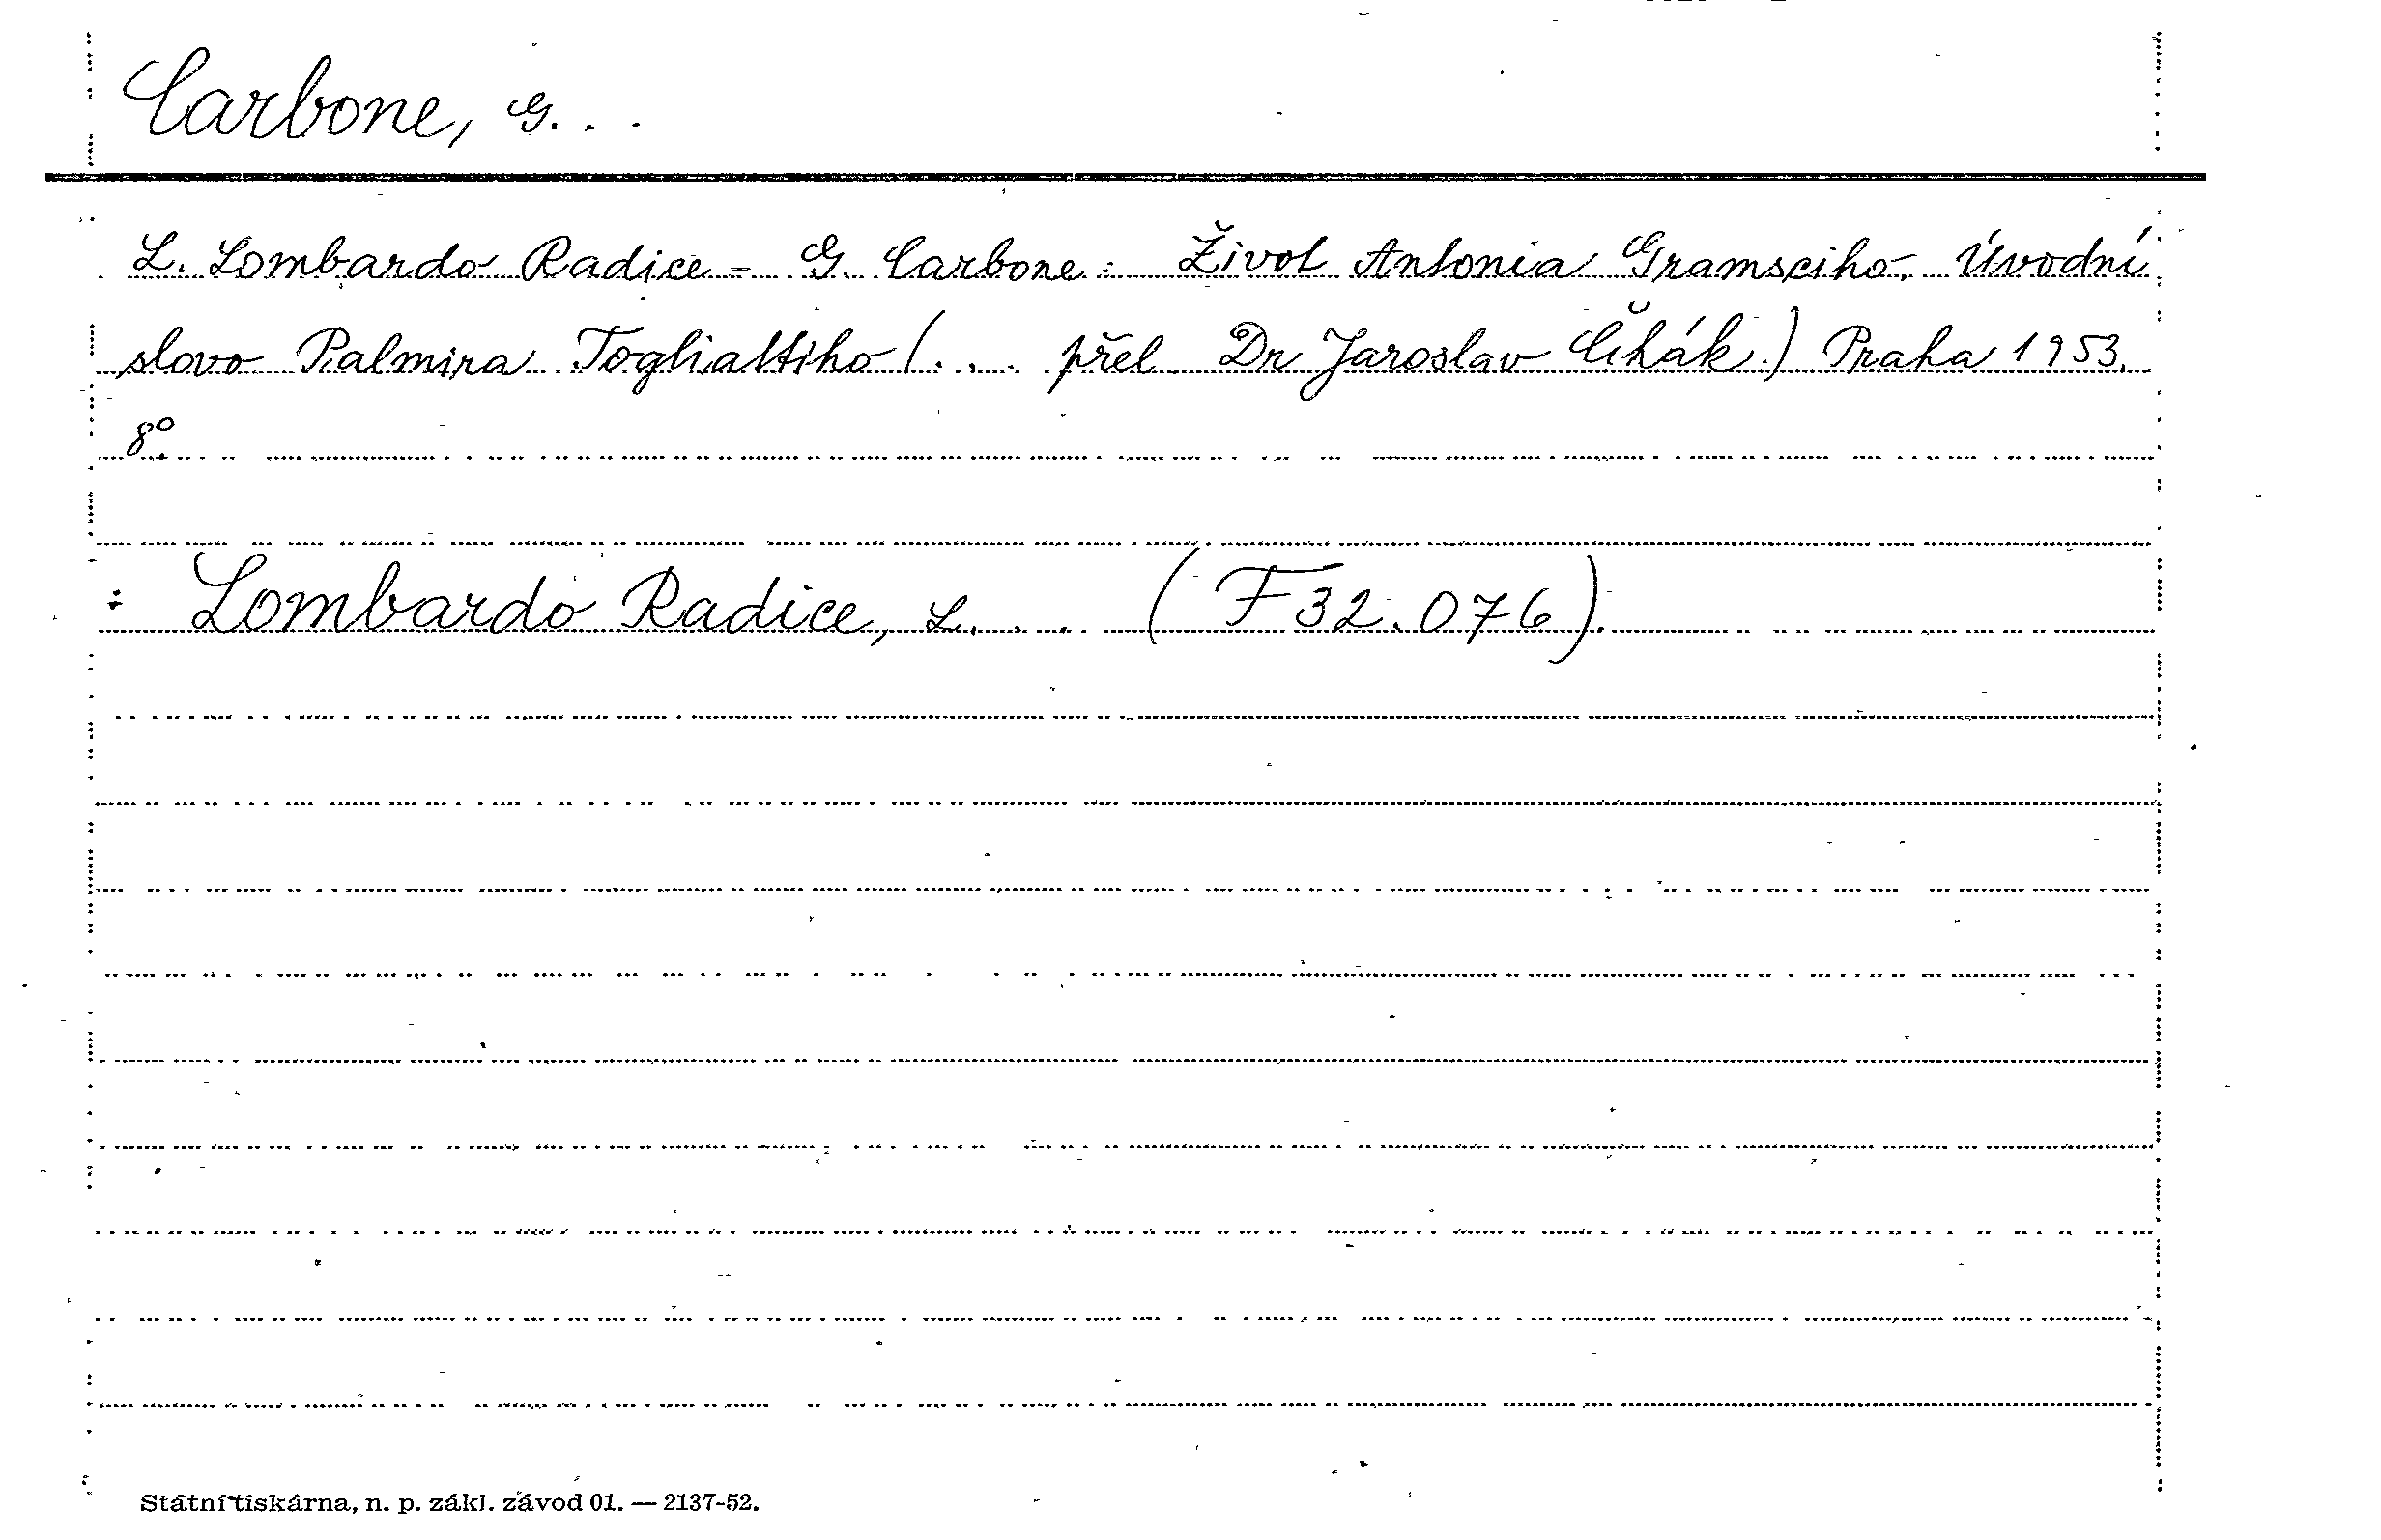 Carbone, G. . .
L. Lombardo Radice - G. Carbone: Život Antonia Gramsciho. Úvodní
slovo Palmira Togliattiho (. . . přel. Dr Jaroslav Čihák.) Praha 1953.
8°.
: Lombardo Radice, L. . . (F 32.076).
Státní tiskárna, n. p. zákl. závod 01. — 2137-52.